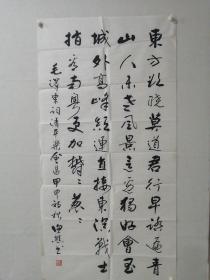 東方欲晓莫道君行早踏遍青
山人未老風景這邊獨好會昌
城外高峰颠連直接東溟戰士
指看南粤更加鬱〻葱〻
毛澤東词清平樂會昌甲申初秋